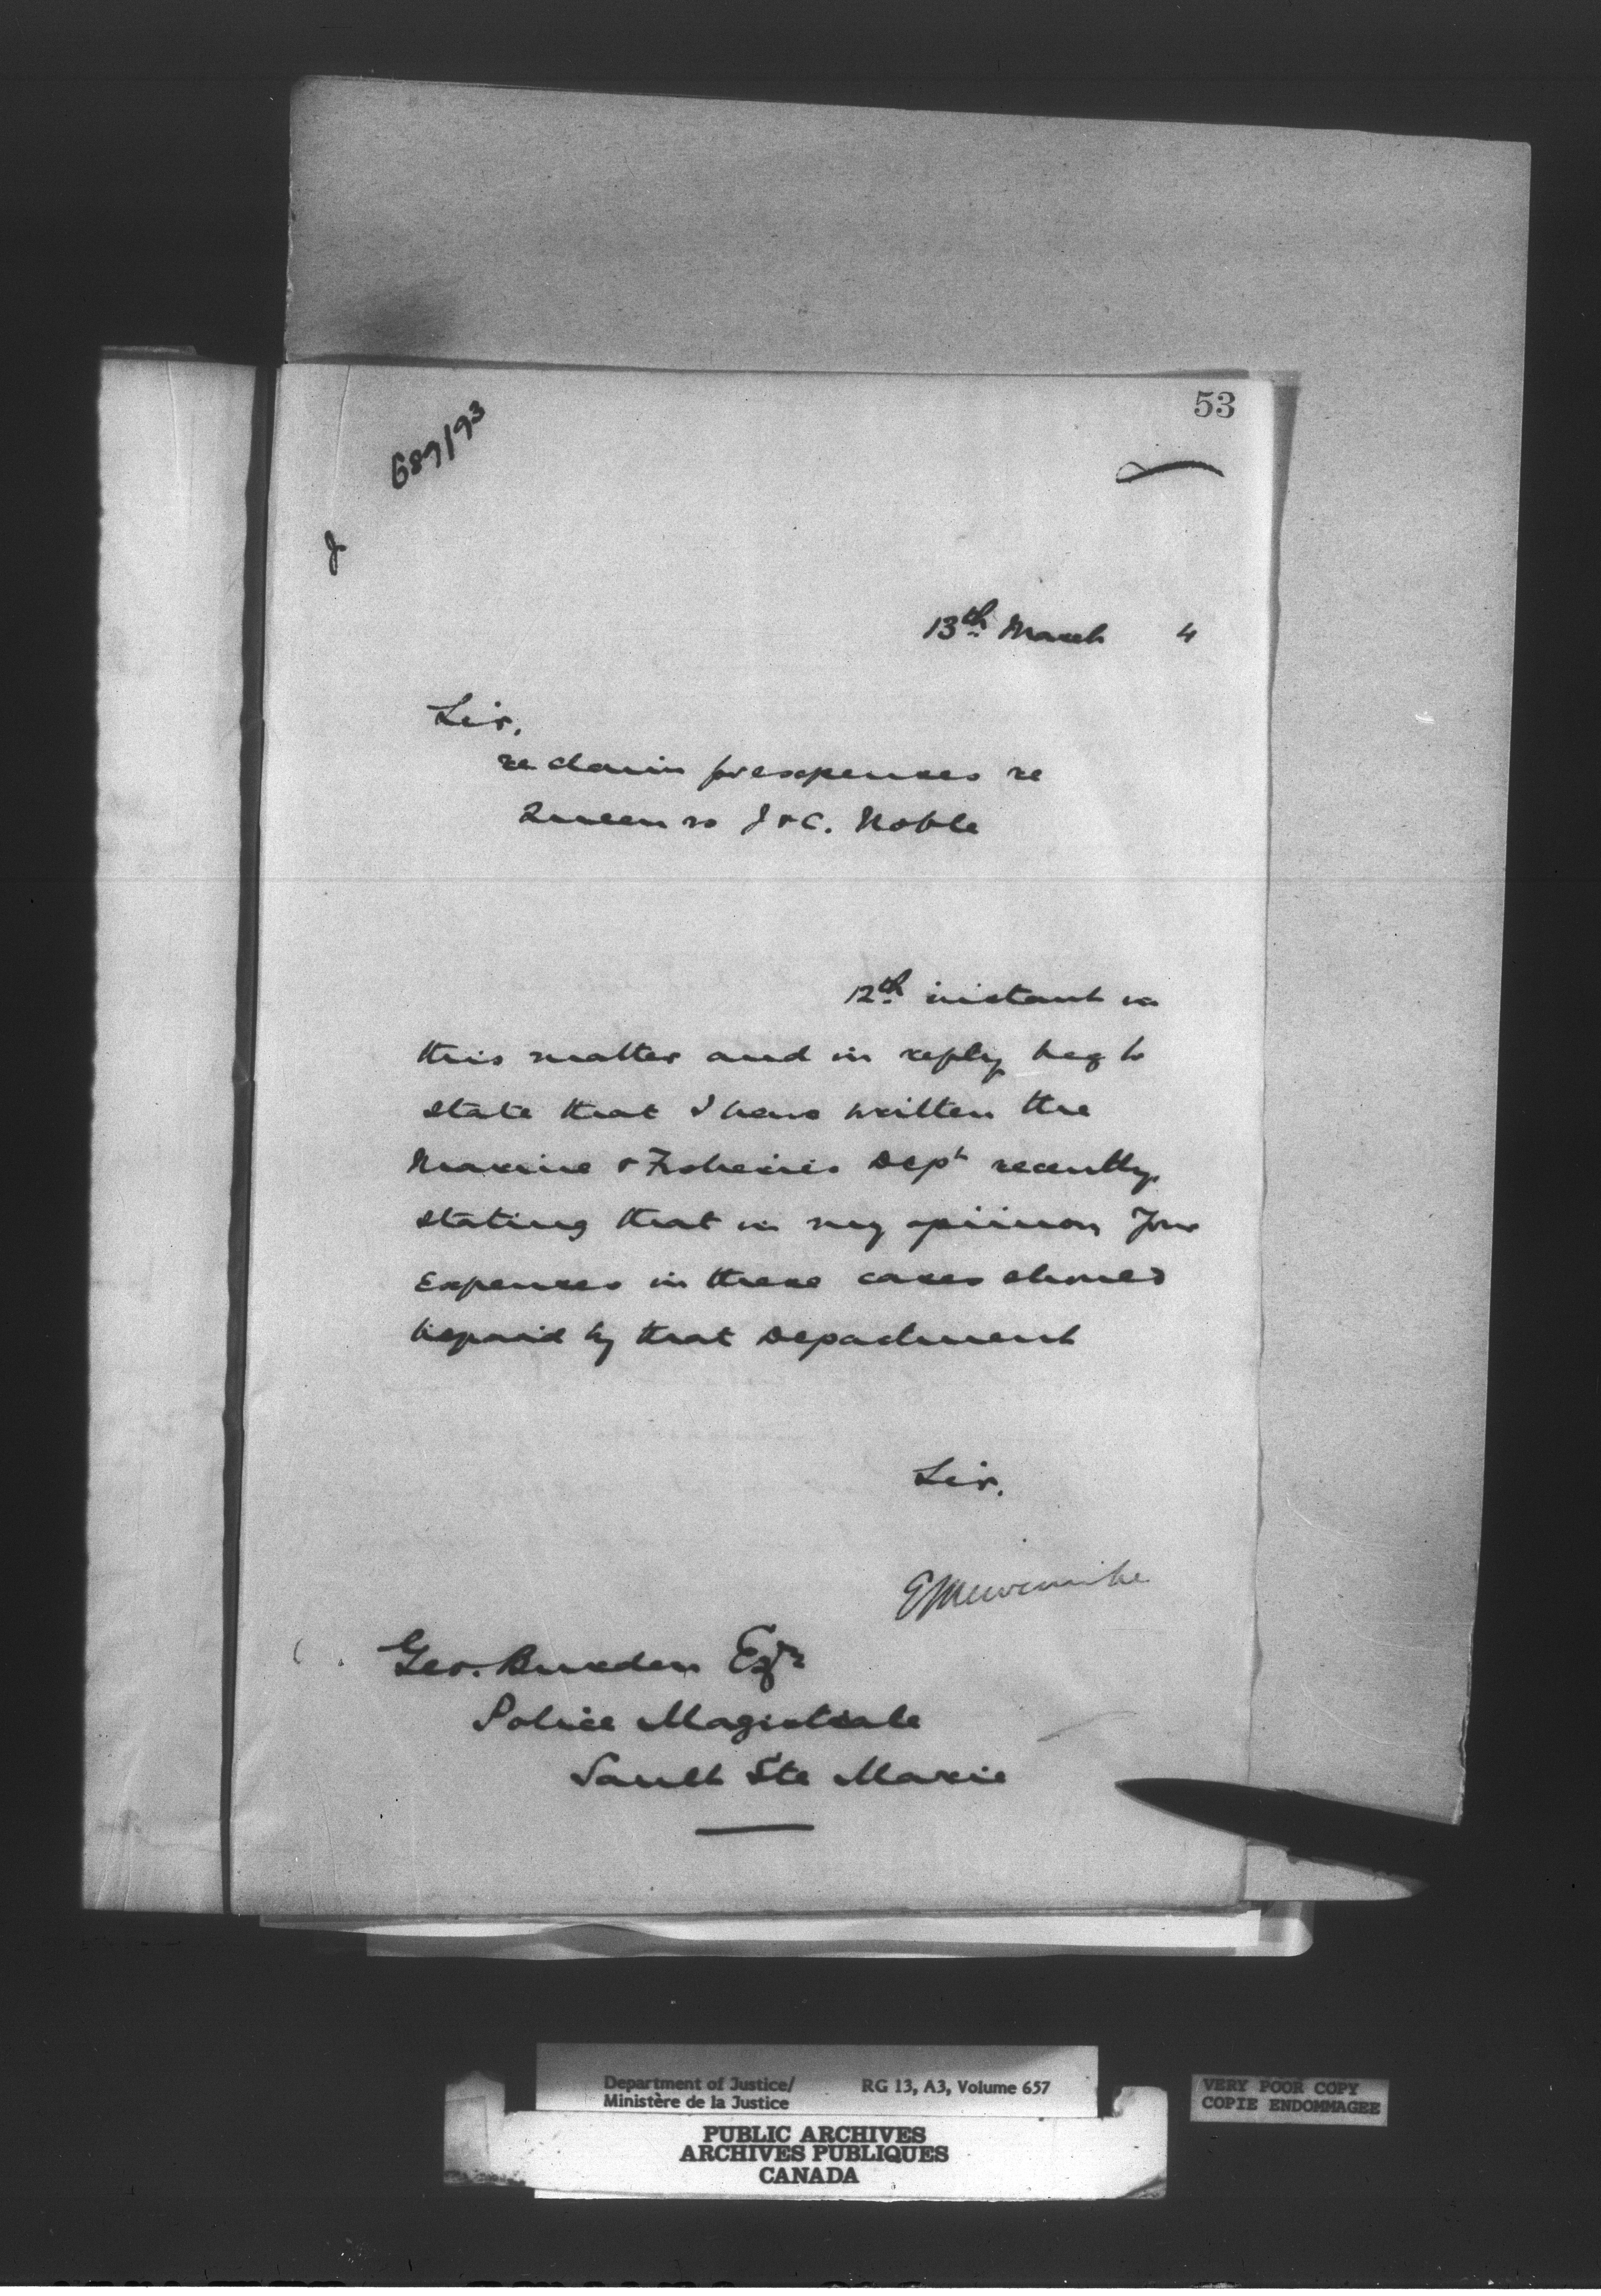 53
689/93
J
13th March 4
Sir,
re claim for expenses re
Queen vs J & C. Noble
12th instant in
this matter and in reply beg to
state that I have written the
Marine & Fisheries Dept recently
stating that in my opinion your
Expenses in these cases should
be paid by that Department
Sir,
Geo. Burden Esqr
Police Magistrate
Sault Ste Marie
Department of Justice/ RG 13, A3, Volume 657
Ministère de la Justice
PUBLIC ARCHIVES
ARCHIVES PUBLIQUES
CANADA
VERY POOR COPY
COPIE ENDOMMAGEE